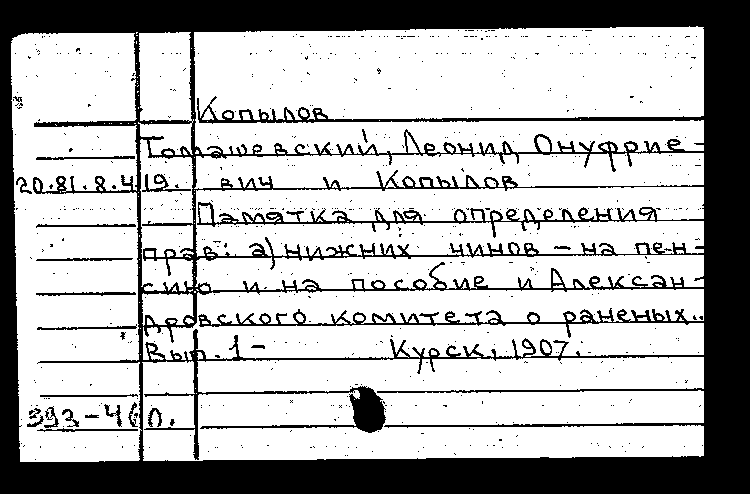 Копылов
Томашевский, Леонид Онуфрие-
20.81.8.419. вич и Копылов
Памятка для определения
прав: а) нижних чинов - на пен-
сию и на пособие и Алексан-
дровского комитета о раненых..
Вып. 1- Курск, 1907.
393-460.